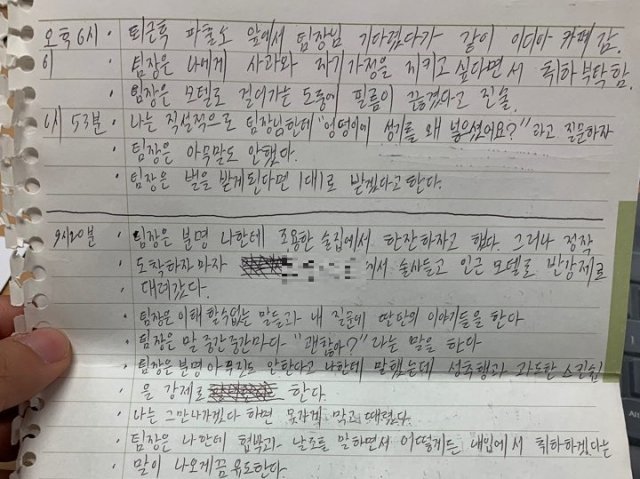 오후 6시 · 퇴근후 파출소 앞에서 팀장님 기다렸다가 같이 이디아 카페 감.
· 팀장은 나에게 사과와 자기가정을 지키고 싶다면서 취하부탁함.
· 팀장은 모텔로 걸어가는 도중에 필름이 끊겼다고 진술.
6시 53분 · 나는 직설적으로 팀장님한테 "엉덩이에 성기를 왜 넣으셨어요?" 라고 질문하자
· 팀장은 아무말도 안했다.
· 팀장은 벌을 받게된다면 1대1로 받겠다고 한다.
9시20분 · 팀장은 분명 나한테 조용한 술집에서 한잔하자고 했다. 그러나 정작
· 도착하자마자 에서 술사들고 인근 모텔로 반강제로
데려갔다.
· 팀장은 이해할수없는 말들과 내 질문에 딴판의 이야기들을 한다
· 팀장은 말 중간중간마다 "괜찮아?" 라는 말을 한다
· 팀장은 분명 아무짓도 안한다고 나한테 말했는데 성추행과 과도한 스킨쉽
을 강제로 한다.
· 나는 그만나가겠다 하면 못나가게 막고 때렸다.
· 팀장은 나한테 협박과 날조를 말하면서 어떻게든 내입에서 취하하겠다는
· 말이 나오게끔 유도한다.